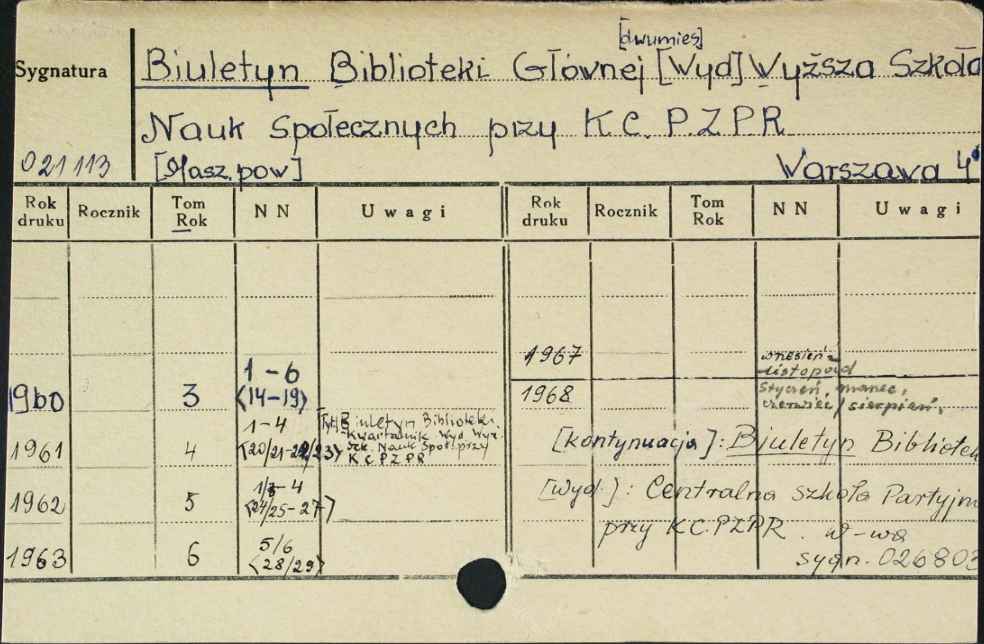 [dwumies]
Sygnatura Biuletyn Biblioteki Głównej [Wyd] Wyższa Szkoła
Nauk Społecznych przy K.C. P.Z.P.R
021113 [Masz. pow] Warszawa 4°
Rok druku Rocznik Tom Rok NN Uwagi Rok druku Rocznik Tom Rok NN Uwagi
1960 3 1-6 <14-19>
1961 4 1-4 <20/21-22/23> Tyt: Biuletyn Biblioteki.
Kwartalnik Wyd. Wyż.
Szk. Nauk Społ. przy
K C P Z P R
1962 5 1/3-4 <24/25-27>
1963 6 5/6 <28/29>
1967 wrzesień-listopad
1968 Styczeń, marzec,
czerwiec, sierpień,
[kontynuacja]: Biuletyn Bibliotek
[wyd.]: Centralna szkoła Partyjn
przy KC.PZPR. W-wa
sygn. 026803